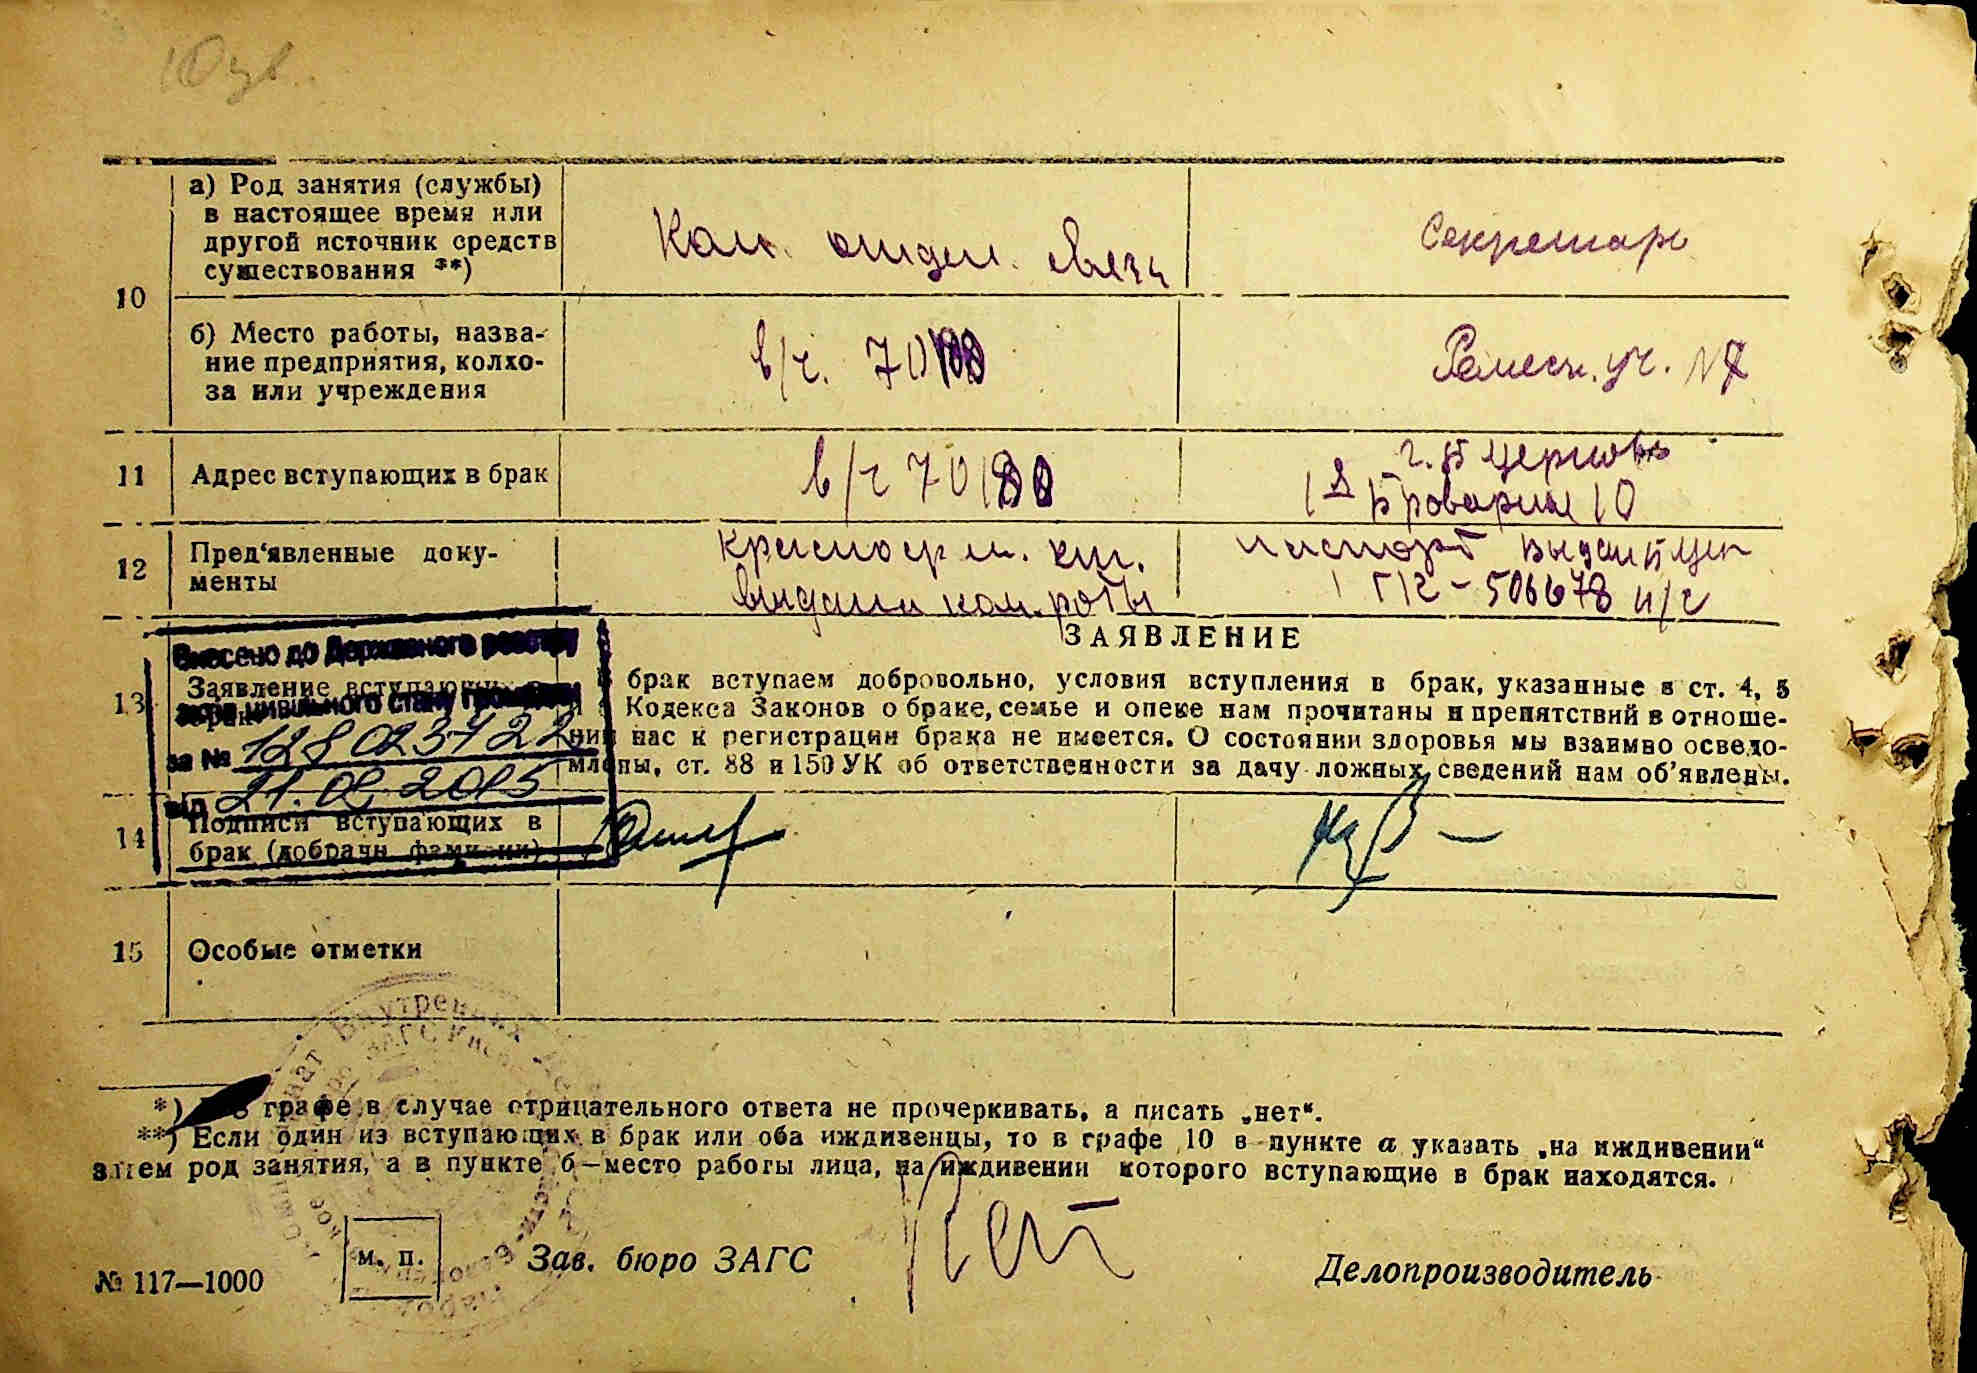 10
а) Род занятия (службы)
в настоящее время или
другой источник средств
существования **)
Ком. отдел. связи
Секретарь
б) Место работы, назва-
ние предприятия, колхо-
за или учреждения
в/ч.
Ремесл. уч. №
11
Адрес вступающих в брак
в/ч
г. Б Церковь
10
12
Пред'явленные доку-
менты
красноарм. кн.
выдана ком. роты
паспорт выдан Б Цер
506678
ЗАЯВЛЕНИЕ
Внесено до Державного реєстру
актів цивільного стану громадян
за № 128023722
від
13
Заявление вступающих
брак вступаем добровольно, условия вступления в брак, указанные в ст. 4, 5
Кодекса Законов о браке, семье и опеке нам прочитаны и препятствий в отноше-
нии нас к регистрации брака не имеется. О состоянии здоровья мы взаимно осведо-
млены, ст. 88 и 150 УК об ответственности за дачу ложных сведений нам об'явлены.
14
Подписи вступающих в
брак (добрачн фамилии)
15
Особые отметки
*) графе в случае отрицательного ответа не прочеркивать, а писать „нет“.
**) Если один из вступающих в брак или оба иждивенцы, то в графе 10 в пункте а указать „на иждивении“
затем род занятия, а в пункте б—место работы лица, на иждивении которого вступающие в брак находятся.
м. п.
Зав. бюро ЗАГС
Делопроизводитель
№ 117—1000